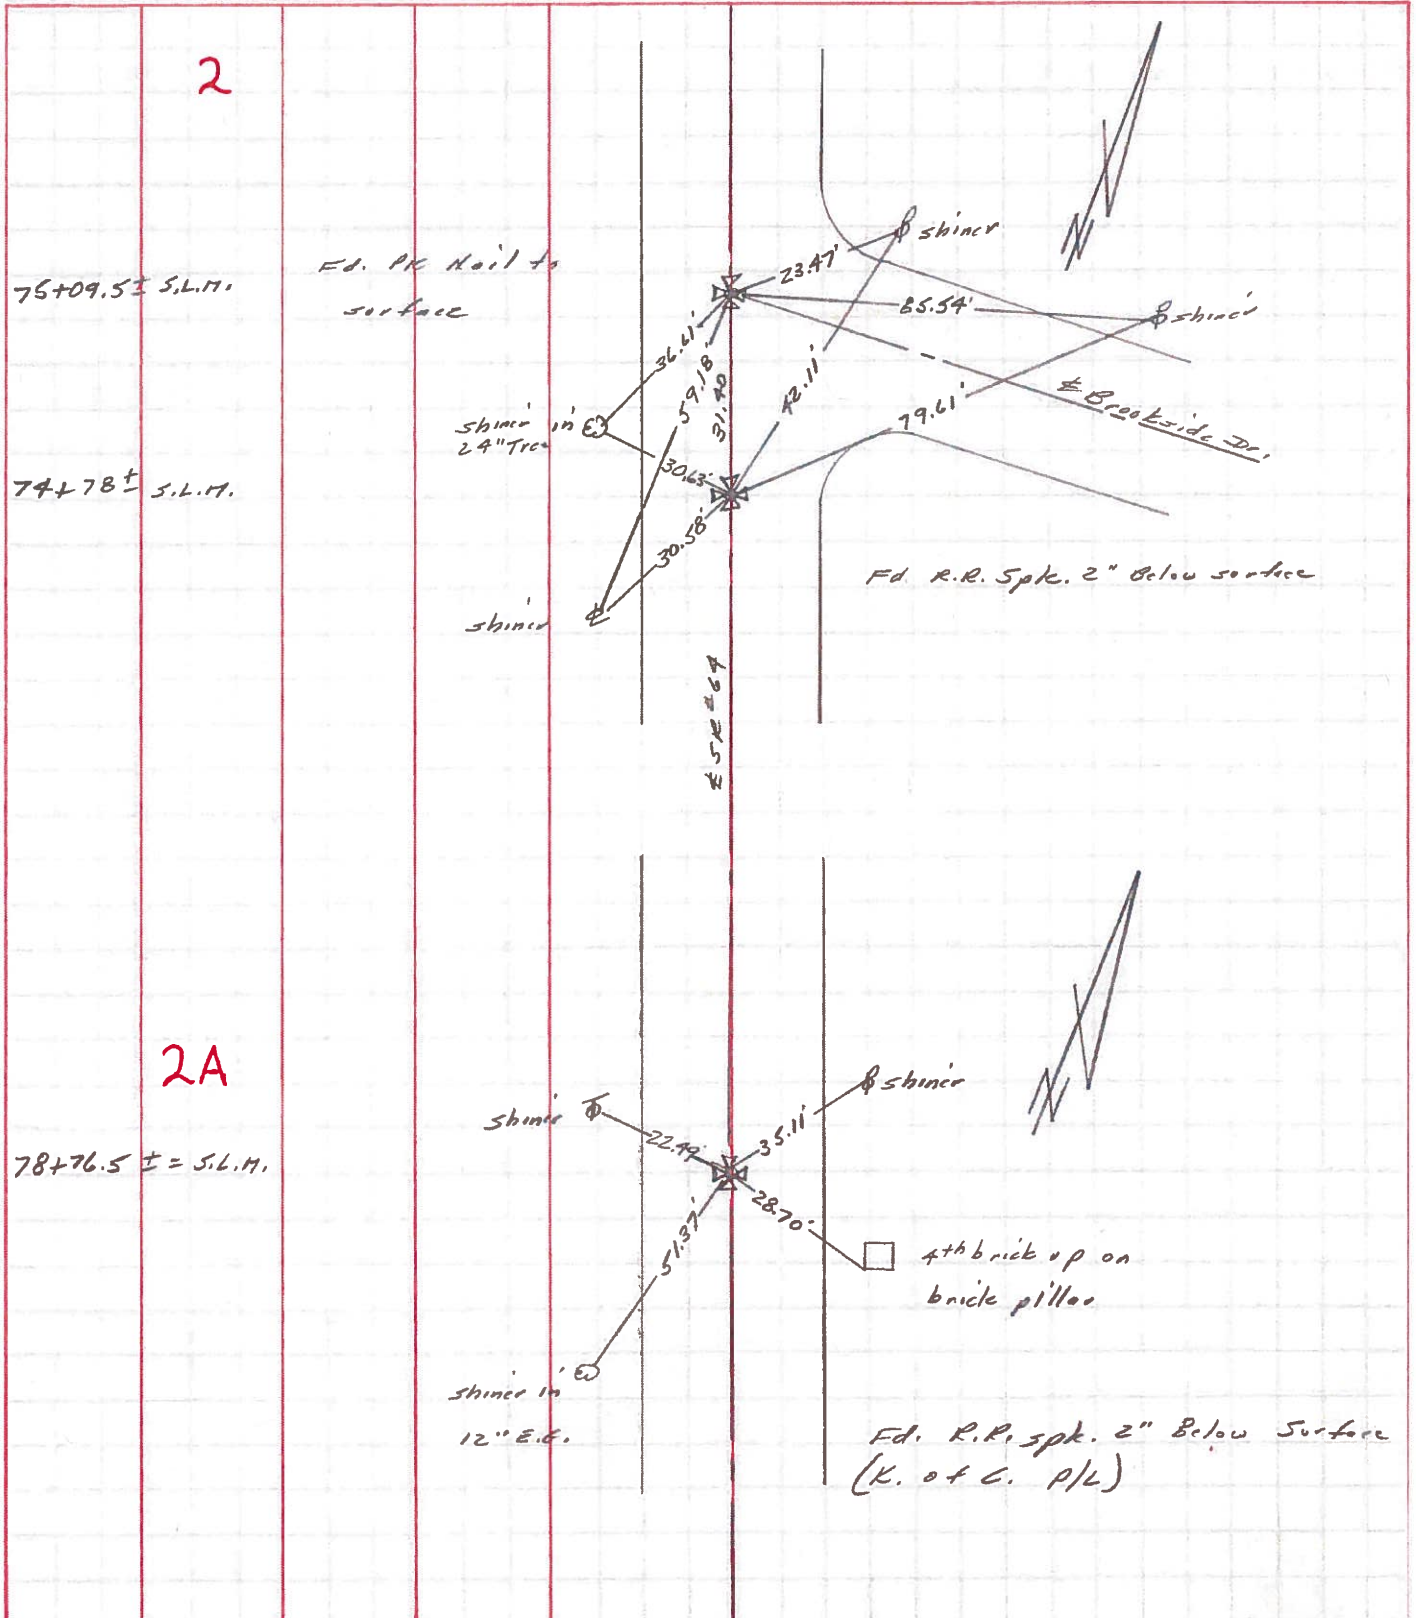 2
75+09.5± S.L.M.
Fd. PK Nail to
surface
shiner
23.47'
85.54'
shiner
36.61'
59.18'
31.40
42.11'
79.61'
℄ Brookside Dr.
shiner in
24" Tree
30.63'
74+78± S.L.M.
30.58'
Fd. R.R. Spk. 2" Below surface
shiner
℄ SR #64
2A
shiner
shiner
22.49'
35.11'
78+76.5 ± = S.L.M.
28.70'
51.37'
4th brick up on
brick pillar
shiner in
12" E.G.
Fd. R.R. spk. 2" Below Surface
(K. of C. P/L)